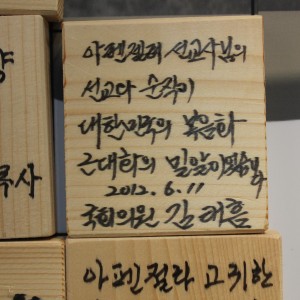 아펜젤러 선교사님의
선교다 순직이
대한민국의 복음화
근대화의 밀알이 되었습니다
2012. 6. 11
국회의원 김태흠
목사
아펜젤라 고귀한